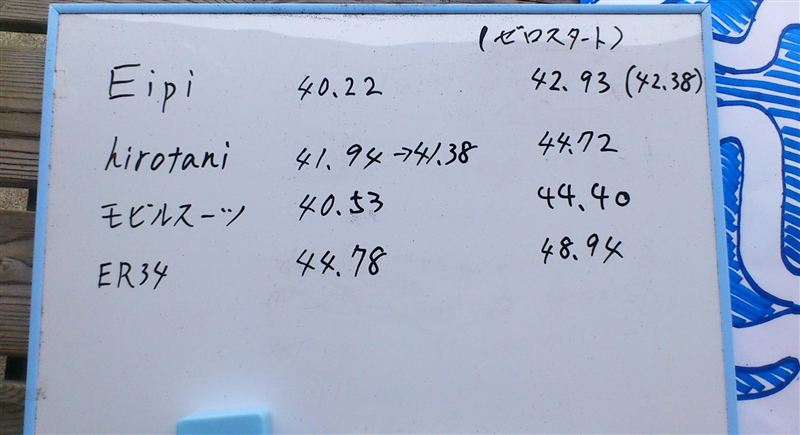 (ゼロスタート)
Eipi 40.22 42.93 (42.38)
hirotani 41.94→41.38 44.72
モビルスーツ 40.53 44.40
ER34 44.78 48.94